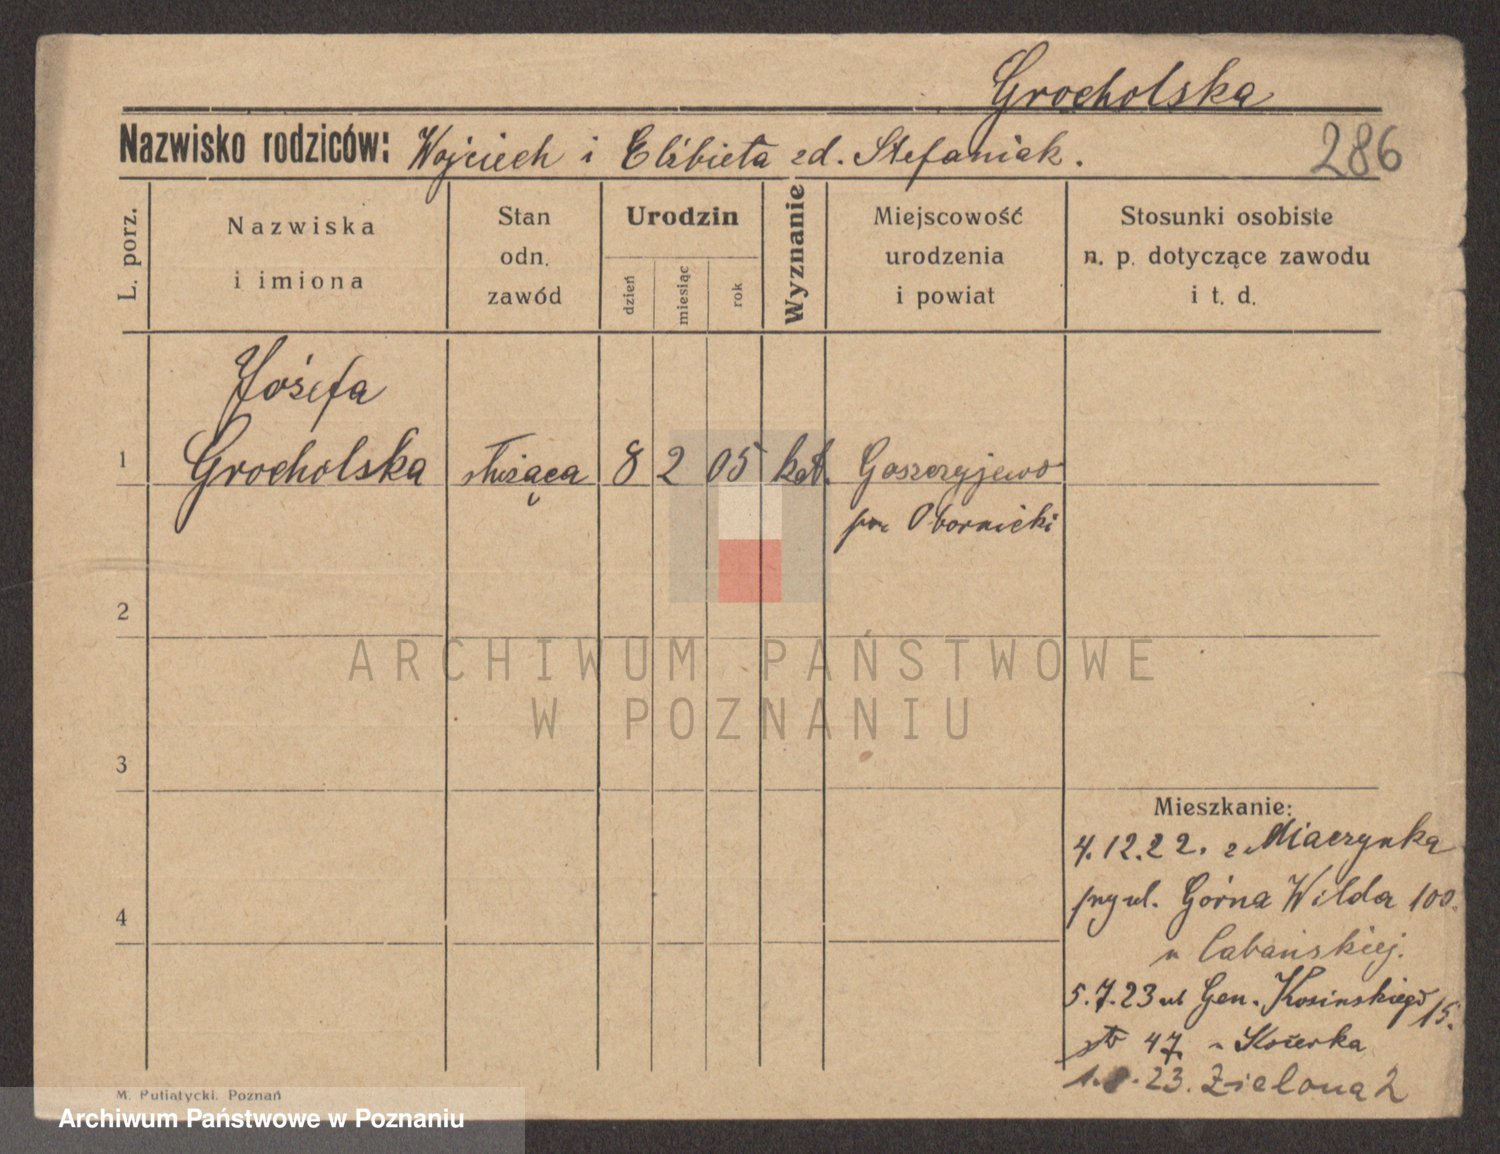 Grocholska
Nazwisko rodziców: Wojciech i Elżbieta zd. Stefaniak.
286
L. porz.
Nazwiska
i imiona
Stan
odn.
zawód
Urodzin
dzień
miesiąc
rok
Wyznanie
Miejscowość
urodzenia
i powiat
Stosunki osobiste
n. p. dotyczące zawodu
i t. d.
Józefa
1 Grocholska służąca 8 2 05 kat. Goszczyjewo
pow. Obornicki
2
ARCHIWUM PAŃSTWOWE
W POZNANIU
3
Mieszkanie:
4.12.22. z Miaczynka
przy ul. Górna Wilda 100.
4
u Cabańskiej.
5.7.23 ul Gen. Kosinskiego 15.
47 u
23. Zielona 2
M. Putiatycki. Poznań
Archiwum Państwowe w Poznaniu